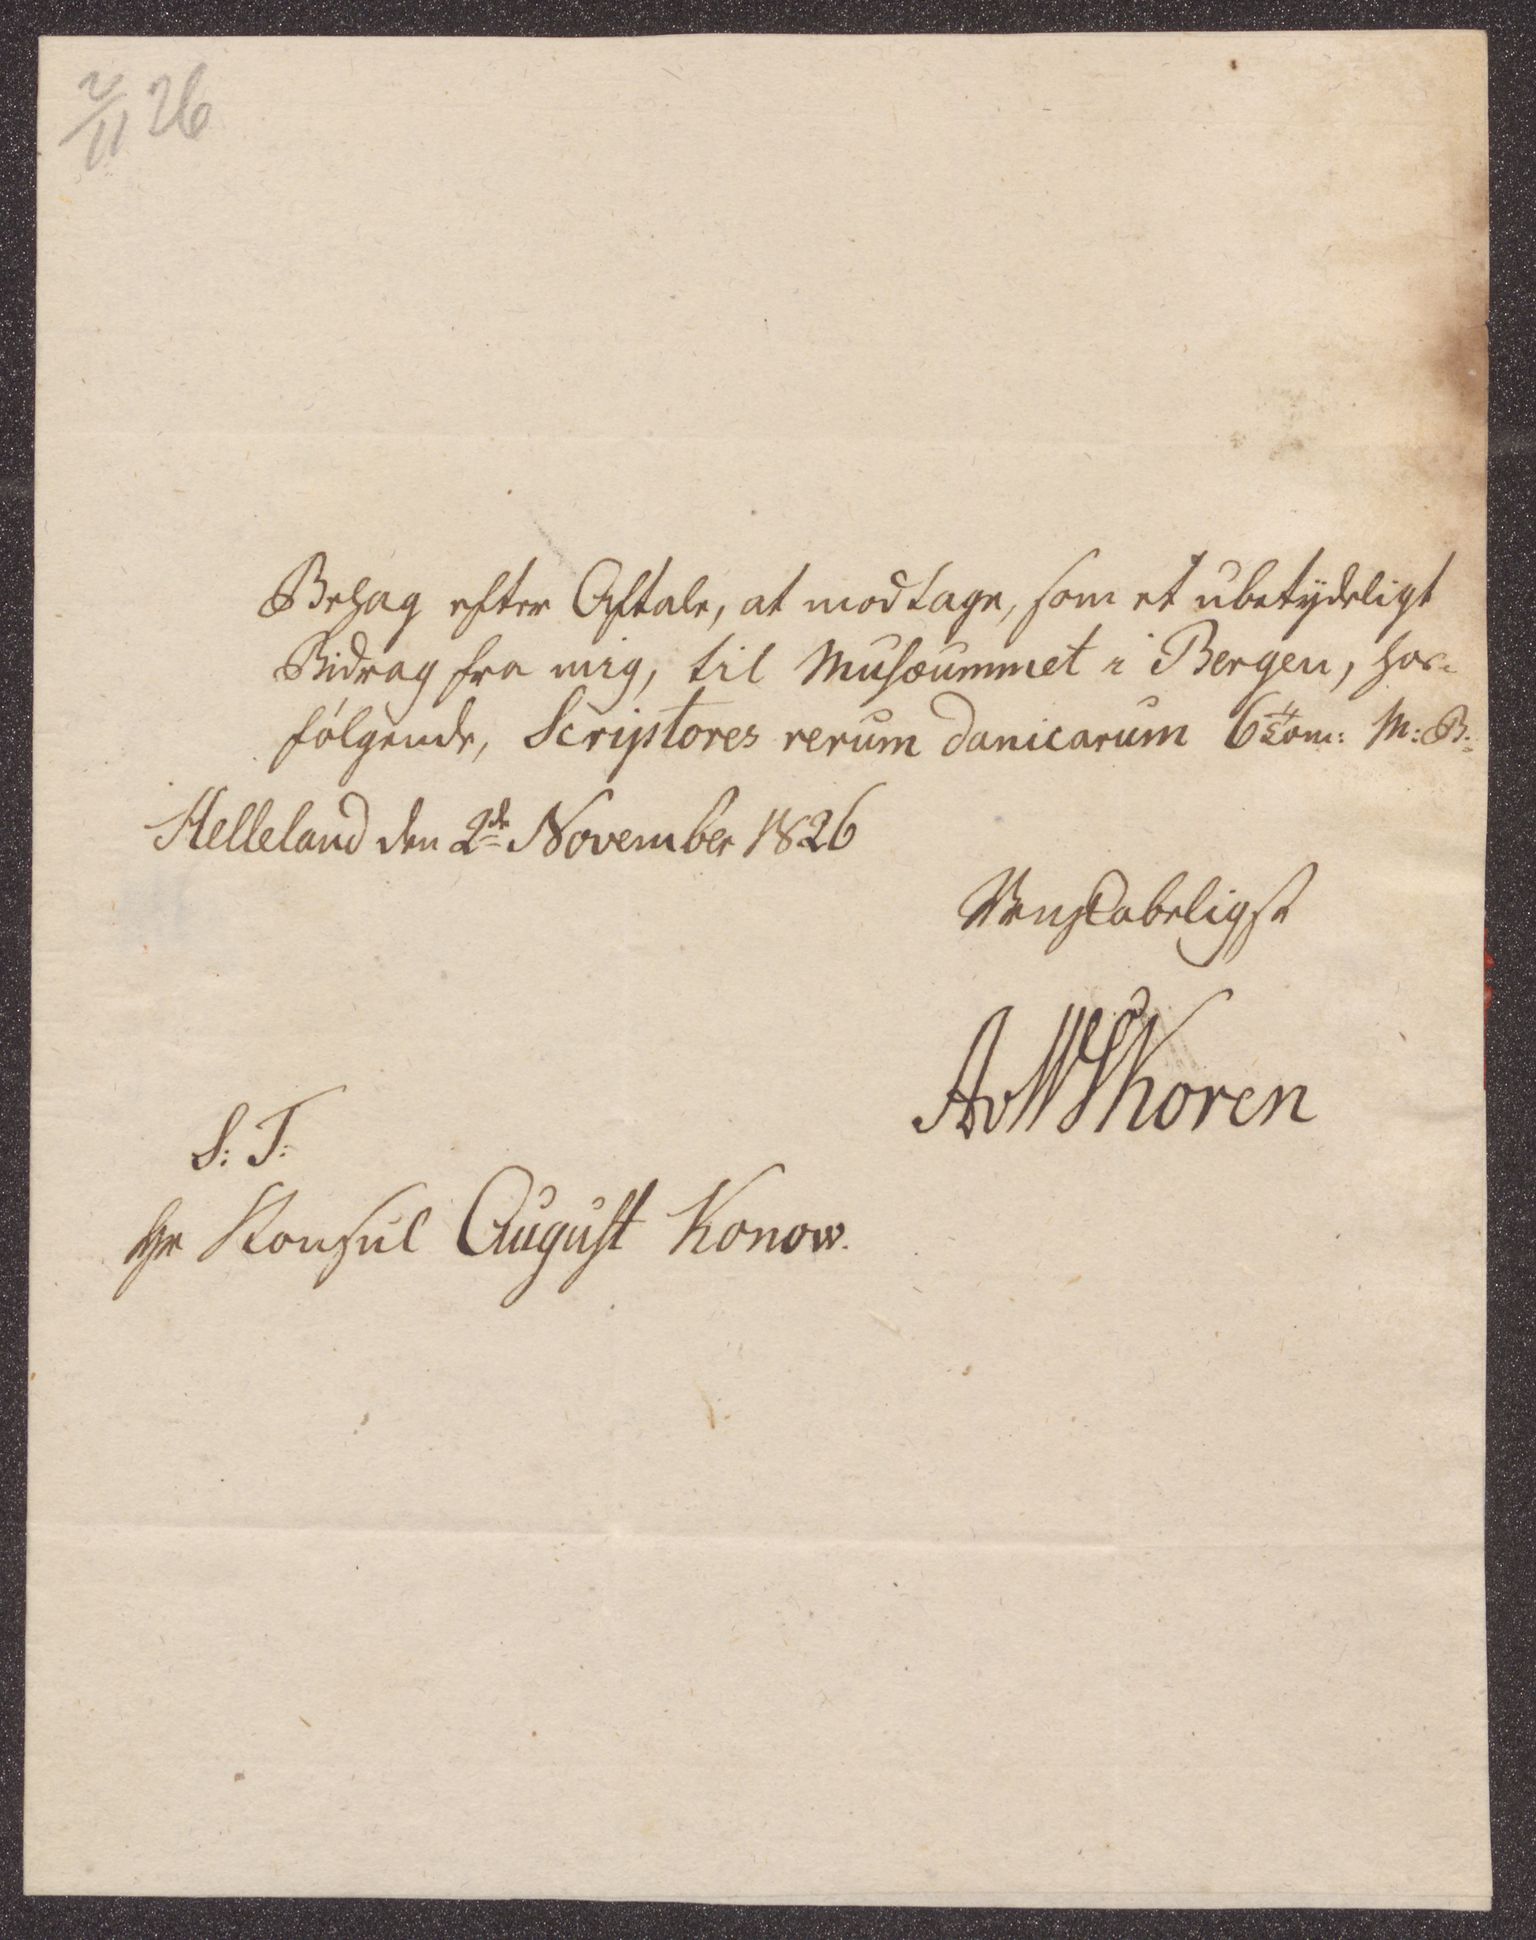 2/11 26
Behag efter Aftale, at modtage, som et ubetÿdeligt
Bidrag fra mig, til Musæummet i Bergen, hos-
følgende, Scriptores rerum Danicarum 6 Tom: M: B:
Helleland den 2de November 1826
Venskabeligst
A W Koren
S. T.
Hr Konsul August Konow.